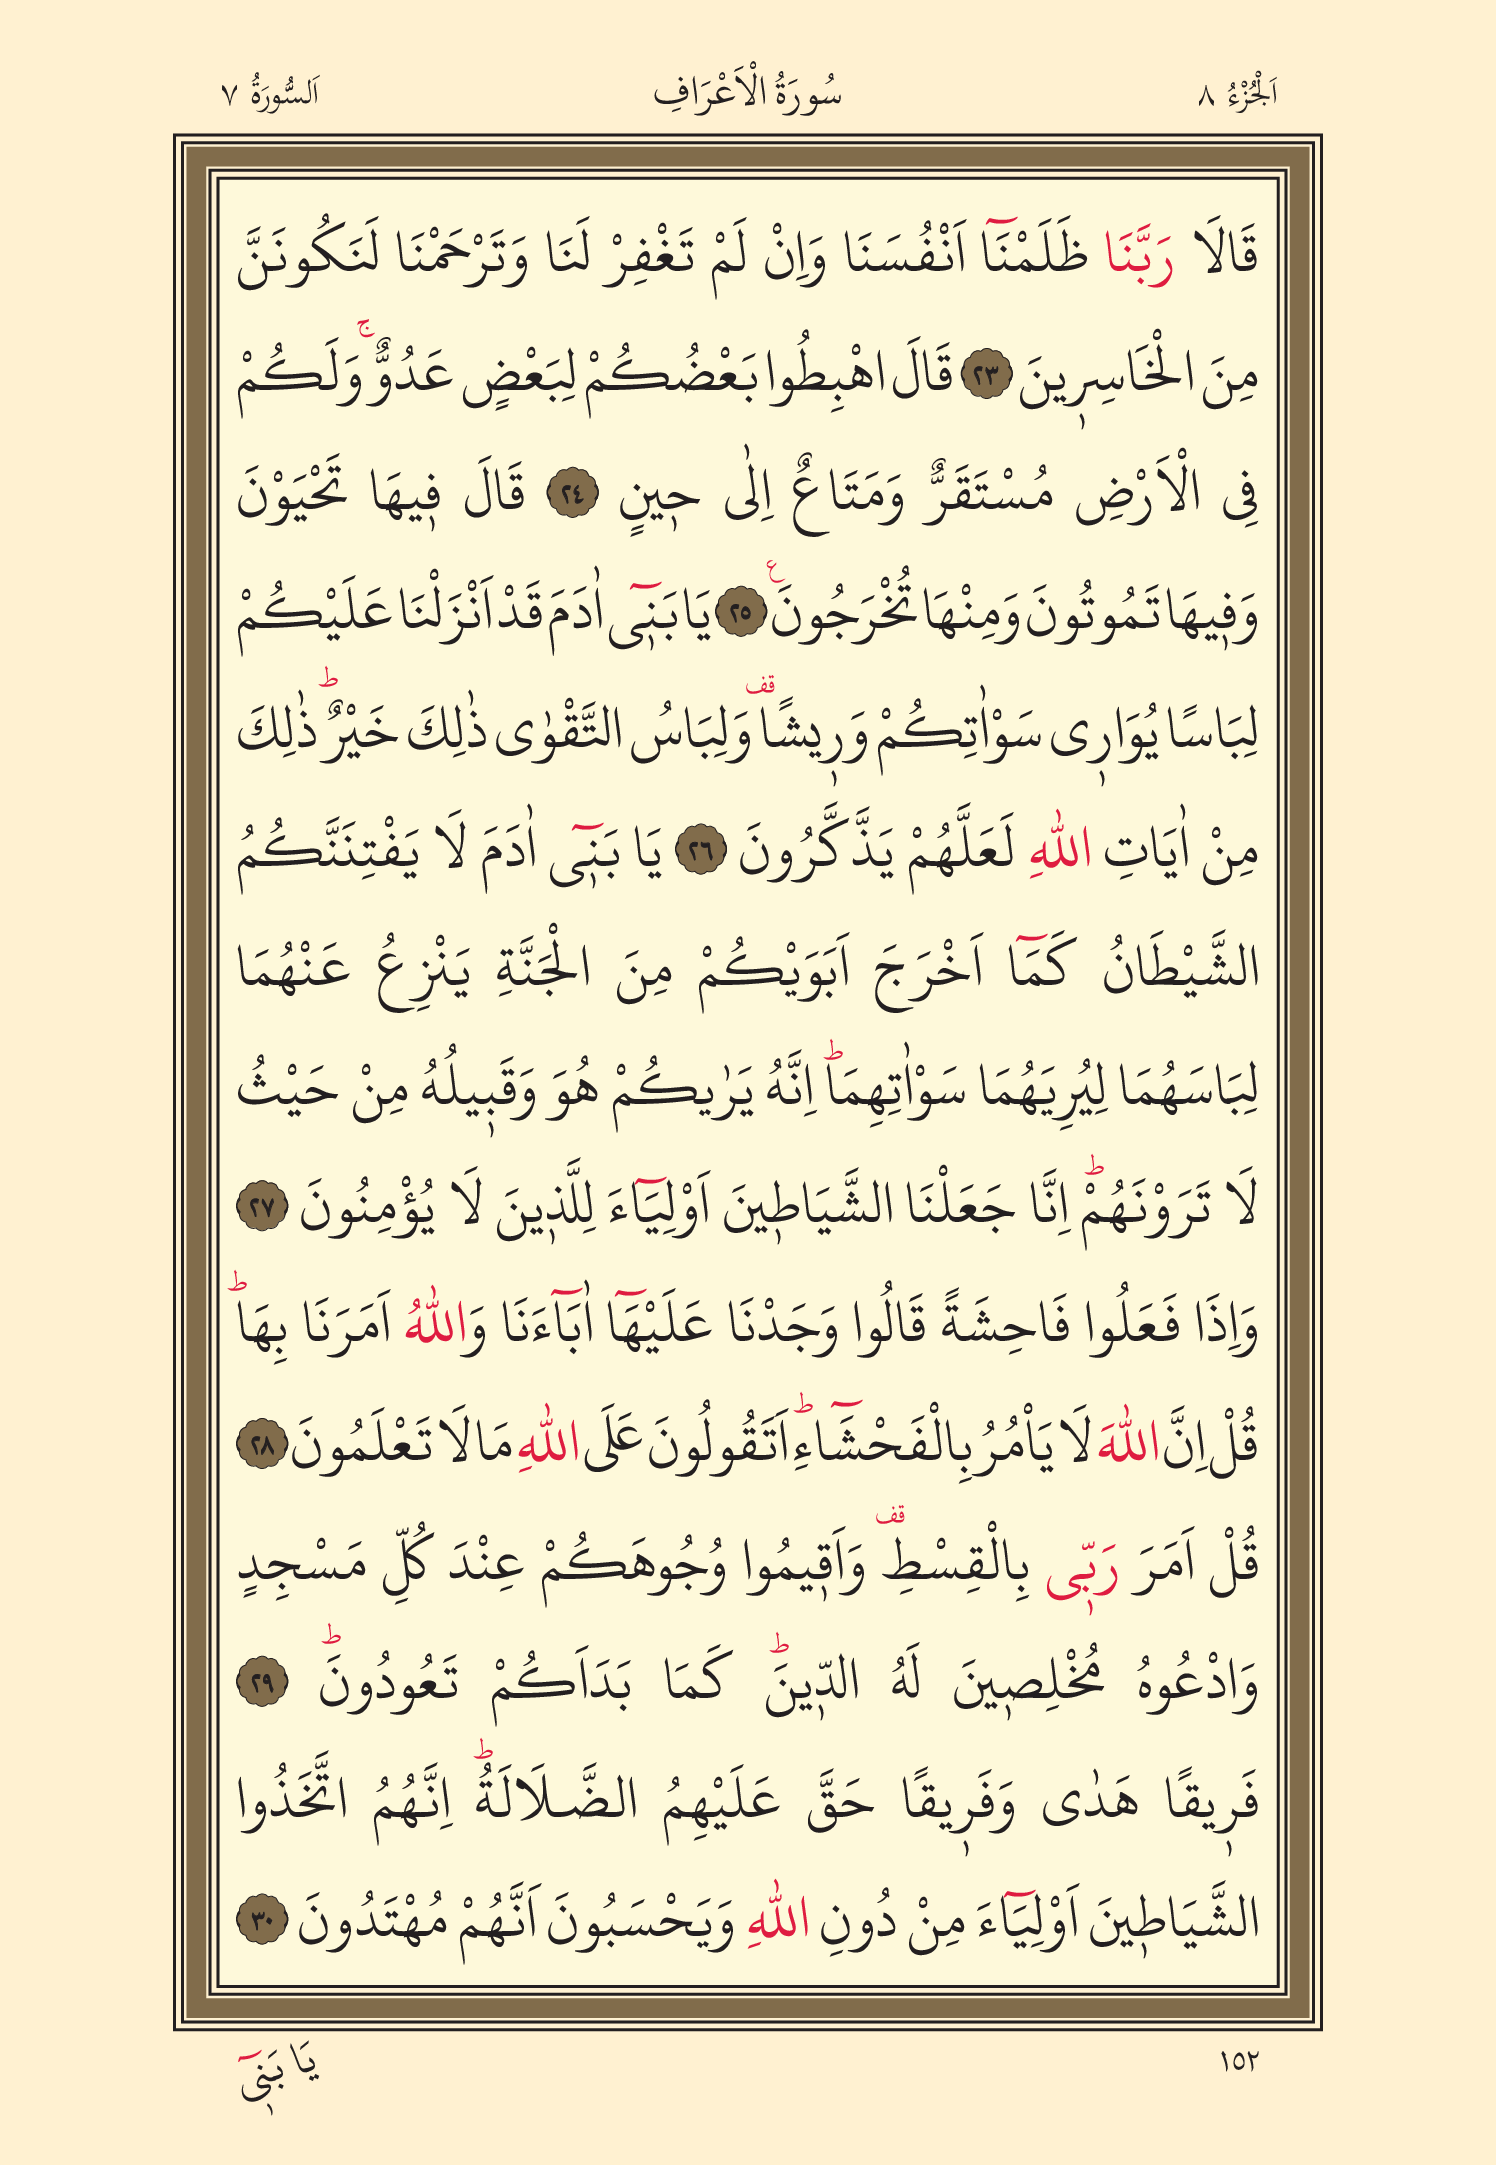 اَلْجُزْءُ ٨ سُورَةُ الْاَعْرَافِ اَلسُّورَةُ ٧
قَالَا رَبَّنَا ظَلَمْنَٓا اَنْفُسَنَا وَاِنْ لَمْ تَغْفِرْ لَنَا وَتَرْحَمْنَا لَنَكُونَنَّ
مِنَ الْخَاسِرٖينَ ٢٣ قَالَ اهْبِطُوا بَعْضُكُمْ لِبَعْضٍ عَدُوٌّۚ وَلَكُمْ
فِى الْاَرْضِ مُسْتَقَرٌّ وَمَتَاعٌ اِلٰى حٖينٍ ٢٤ قَالَ فٖيهَا تَحْيَوْنَ
وَفٖيهَا تَمُوتُونَ وَمِنْهَا تُخْرَجُونَࣖ ٢٥ يَا بَنٖٓى اٰدَمَ قَدْ اَنْزَلْنَا عَلَيْكُمْ
لِبَاسًا يُوَارٖى سَوْاٰتِكُمْ وَرٖيشًاࣞ وَلِبَاسُ التَّقْوٰى ذٰلِكَ خَيْرٌؕ ذٰلِكَ
مِنْ اٰيَاتِ اللّٰهِ لَعَلَّهُمْ يَذَّكَّرُونَ ٢٦ يَا بَنٖٓى اٰدَمَ لَا يَفْتِنَنَّكُمُ
الشَّيْطَانُ كَمَٓا اَخْرَجَ اَبَوَيْكُمْ مِنَ الْجَنَّةِ يَنْزِعُ عَنْهُمَا
لِبَاسَهُمَا لِيُرِيَهُمَا سَوْاٰتِهِمَاؕ اِنَّهُ يَرٰيكُمْ هُوَ وَقَبٖيلُهُ مِنْ حَيْثُ
لَا تَرَوْنَهُمْؕ اِنَّا جَعَلْنَا الشَّيَاطٖينَ اَوْلِيَٓاءَ لِلَّذٖينَ لَا يُؤْمِنُونَ ٢٧
وَاِذَا فَعَلُوا فَاحِشَةً قَالُوا وَجَدْنَا عَلَيْهَٓا اٰبَٓاءَنَا وَاللّٰهُ اَمَرَنَا بِهَاؕ
قُلْ اِنَّ اللّٰهَ لَا يَاْمُرُ بِالْفَحْشَٓاءِؕ اَتَقُولُونَ عَلَى اللّٰهِ مَا لَا تَعْلَمُونَ ٢٨
قُلْ اَمَرَ رَبّٖى بِالْقِسْطِࣞ وَاَقٖيمُوا وُجُوهَكُمْ عِنْدَ كُلِّ مَسْجِدٍ
وَادْعُوهُ مُخْلِصٖينَ لَهُ الدّٖينَؕ كَمَا بَدَاَكُمْ تَعُودُونَؕ ٢٩
فَرٖيقًا هَدٰى وَفَرٖيقًا حَقَّ عَلَيْهِمُ الضَّلَالَةُؕ اِنَّهُمُ اتَّخَذُوا
الشَّيَاطٖينَ اَوْلِيَٓاءَ مِنْ دُونِ اللّٰهِ وَيَحْسَبُونَ اَنَّهُمْ مُهْتَدُونَ ٣٠
١٥٢ يَا بَنٖٓى